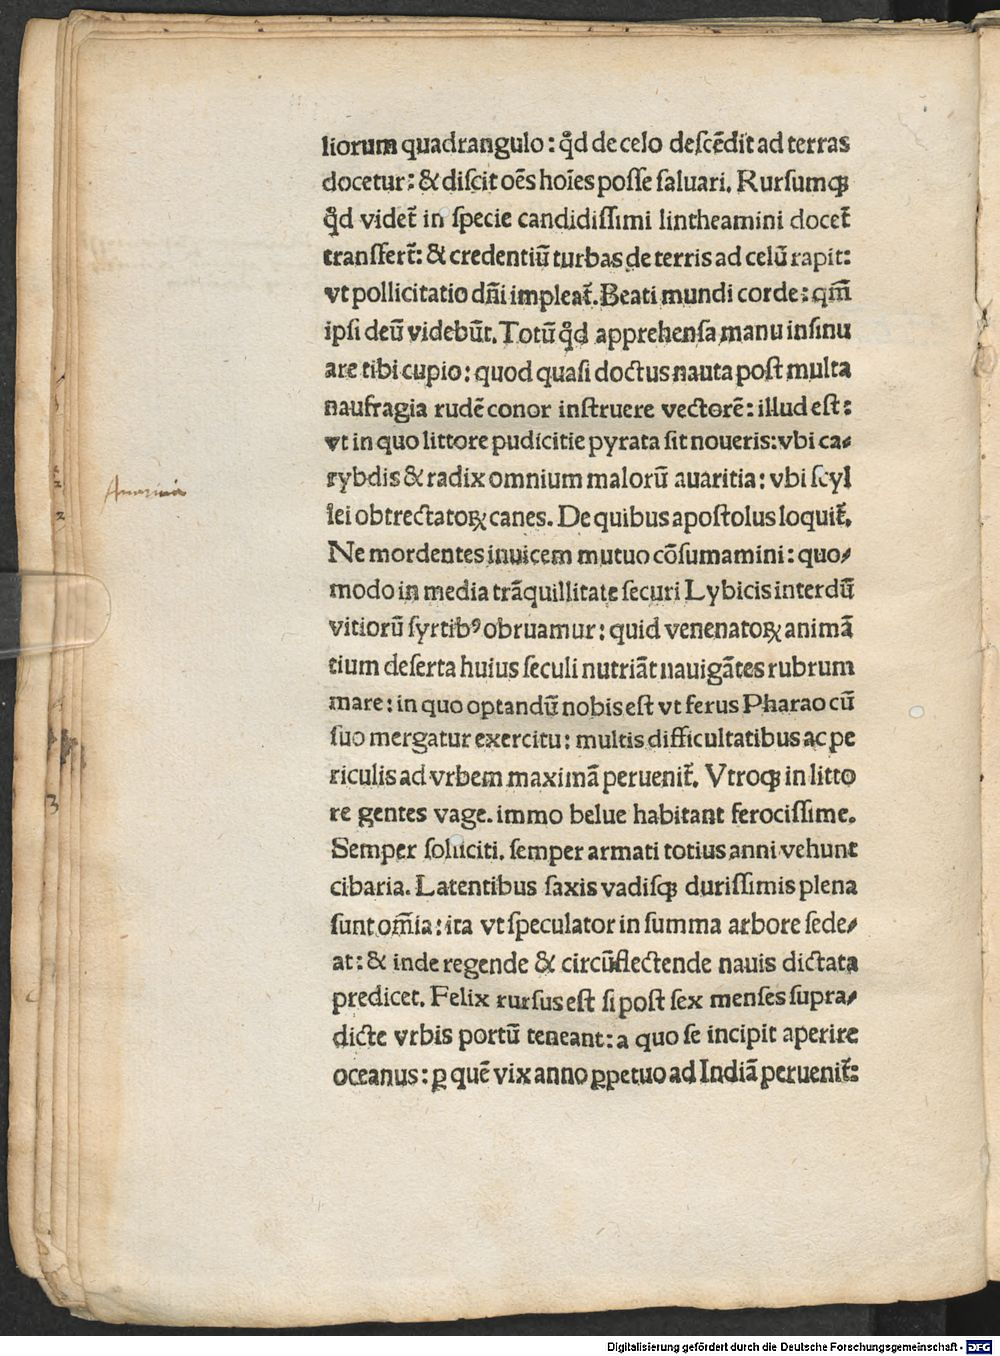 liorum quadrangulo: qd̛ de celo descēdit ad terras
docetur: & discit oēs hoīes posse saluari. Rursumqꝫ
qd̛ videt᷑ in specie candidissimi lintheamini docet᷑
transfert᷑: & credentiū turbas de terris ad celū rapit:
vt pollicitatio dn̄i impleat᷑. Beati mundi corde: qm̄
ipsi deū videbūt. Totū qd̛ apprehensa manu insinu
are tibi cupio: quod quasi doctus nauta post multa
naufragia rudē conor instruere vectorē: illud est:
vt in quo littore pudicitie pyrata sit noueris: vbi ca⸗
rybdis & radix omnium malorū auaritia: vbi scyl
lei obtrectatoꝝ canes. De quibus apostolus loquit᷑.
Ne mordentes inuicem mutuo cōsumamini: quo⸗
modo in media trāquillitate securi Lybicis interdū
vitiorū syrtibꝰ obruamur: quid venenatoꝝ animā
tium deserta huius seculi nutriāt nauigātes rubrum
mare: in quo optandū nobis est vt ferus Pharao cū
suo mergatur exercitu: multis difficultatibus ac pe
riculis ad vrbem maximā peruenit᷑. Vtroqꝫ in litto
re gentes vage. immo belue habitant ferocissime.
Semper soliiciti. semper armati totius anni vehunt
cibaria. Latentibus saxis vadisqꝫ durissimis plena
sunt om̄ia: ita vt speculator in summa arbore sede⸗
at: & inde regende & circūflectende nauis dictata
predicet. Felix rursus est si post sex menses supra⸗
dicte vrbis portū teneant: a quo se incipit aperire
oceanus: ꝑ quē vix anno ꝑpetuo ad Indiā peruenit᷑:
Digitalisierung gefördert durch die Deutsche Forschungsgemeinschaft - DFG